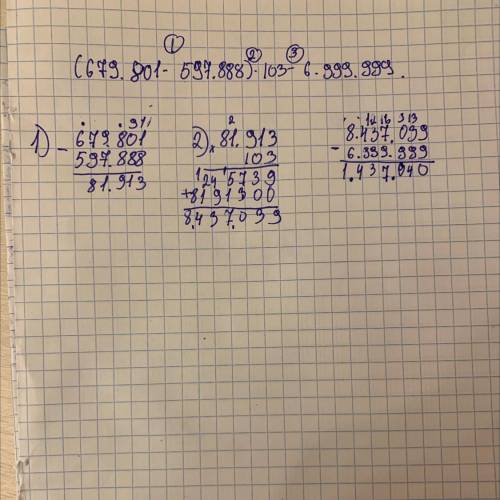 ① ② ③
(679.801 - 597.888) · 103 - 6.999.999.
1) 679.801
- 597.888
81.913
2) × 81.913
103
245739
+ 8191300
8.437.039
8.437.039
- 6.999.989
1.437.040